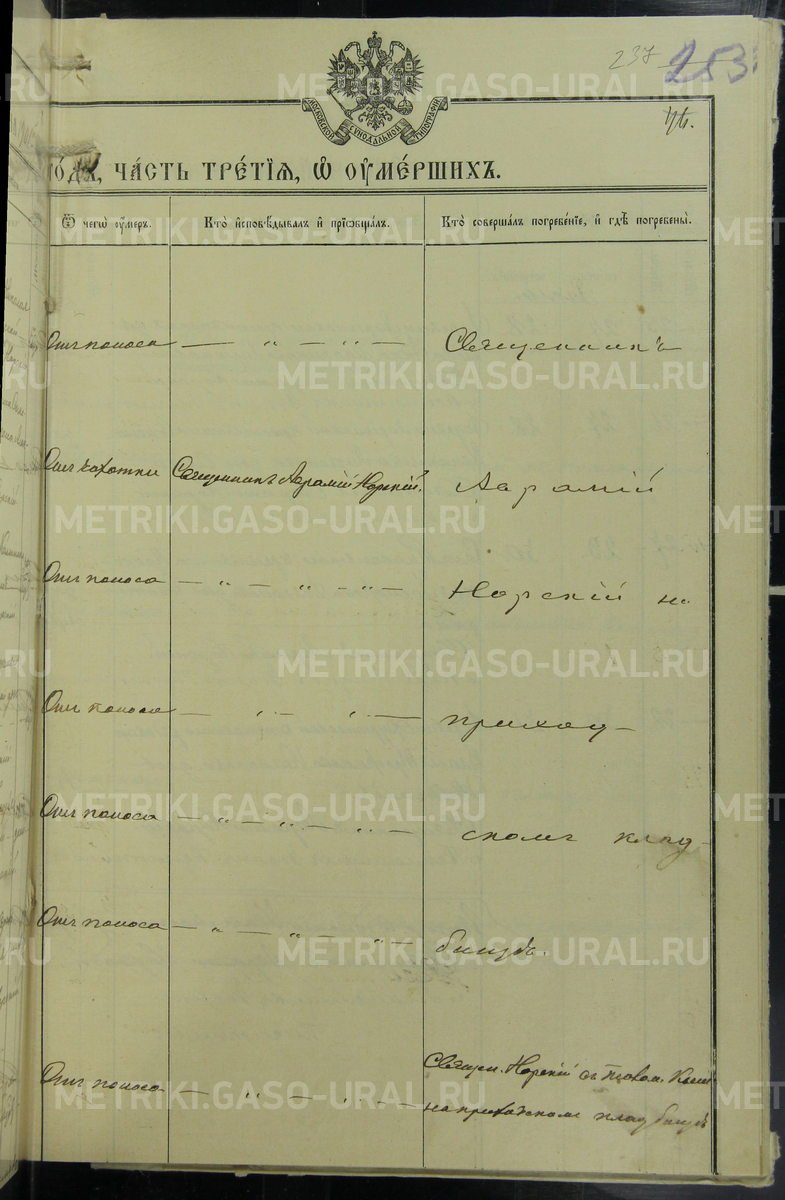 237 253
МОСКОВСКОЙ СѴНОДАЛЬНОЙ ТИПОГРАФІИ
ЧА́СТЬ ТРЕ́ТІѦ, Ѽ ОУ҆МЕ́РШИХЪ.
Ѿ чегѡ̀ оу҆́меръ. Кто̀ и҆сповѣ́дывалъ и҆ прїѡбща́лъ. Кто̀ соверша́лъ погребе́нїе, и҆ гдѣ̀ погребены̀.
Отъ поноса — „ — „ — Священникъ
Отъ чахотки Священникъ Авраамій Норскій. Авраамій
Отъ поноса — „ — „ — „ — Норскій на
Отъ поноса — „ — „ — приход-
Отъ поноса — „ — „ — „ — скомъ клад-
Отъ поноса — „ — „ — „ — бищѣ.
Отъ поноса — „ — „ — Священ. Норскій съ
на приходскомъ кладбищѣ
METRIKI.GASO-URAL.RU